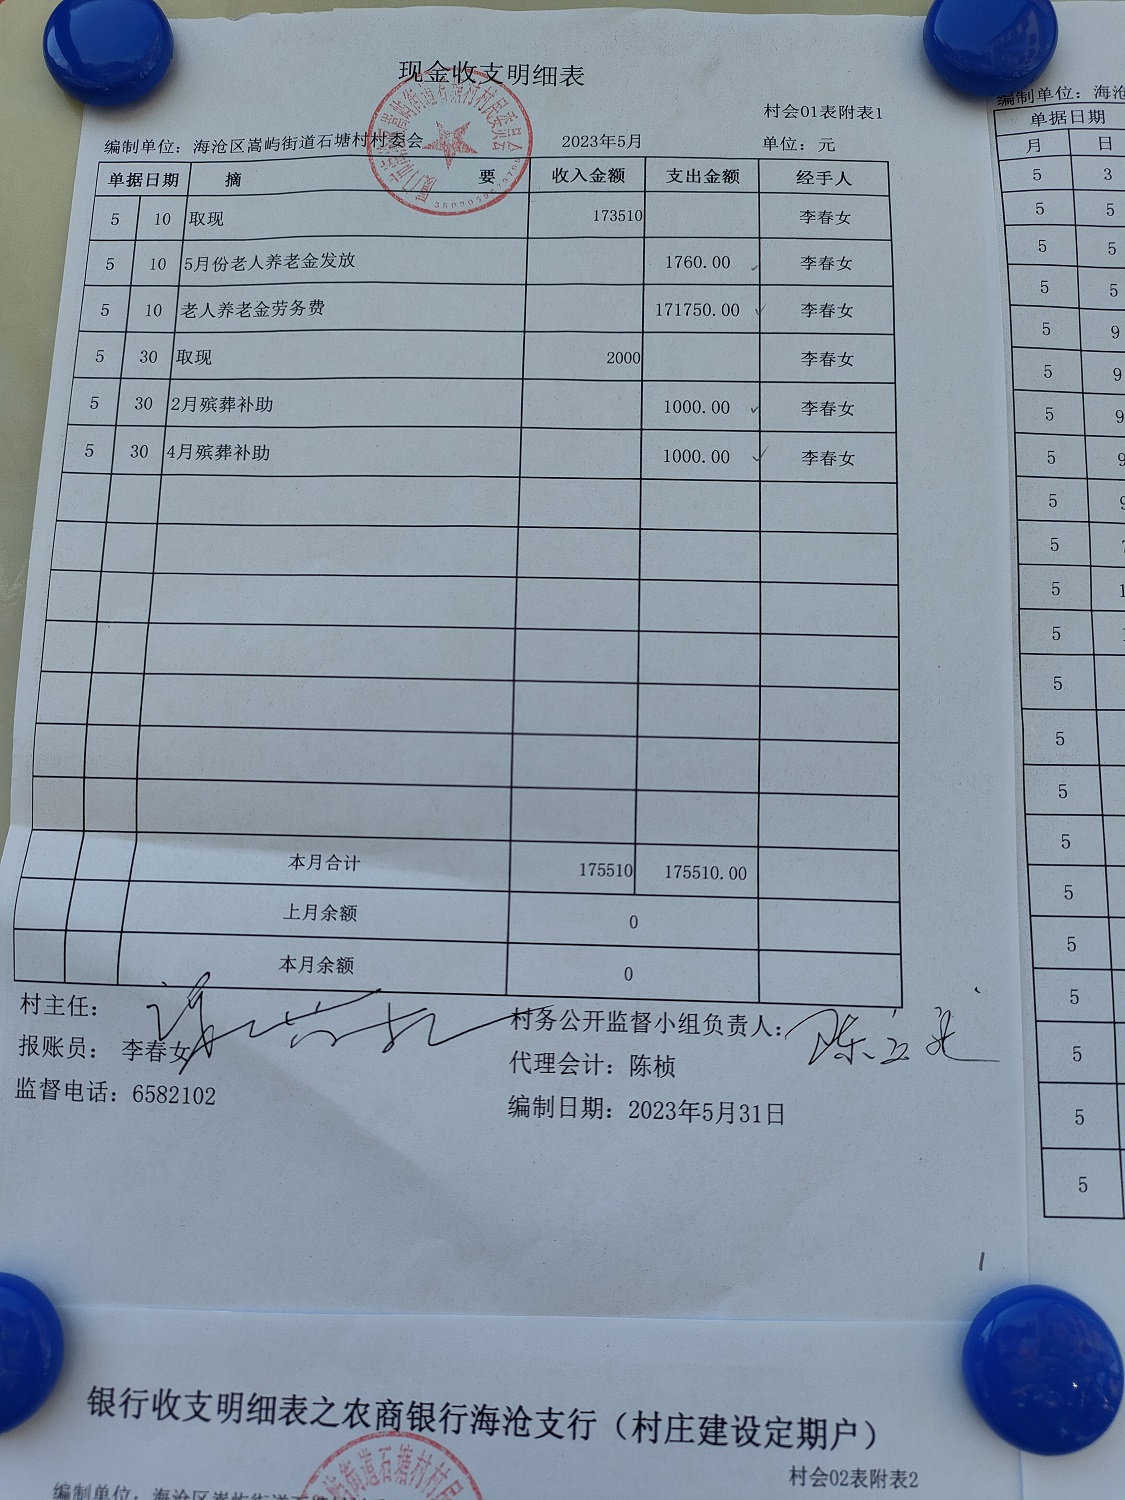 现金收支明细表
村会01表附表1
编制单位：海沧区嵩屿街道石塘村村委会 2023年5月 单位：元
单据日期 摘 要 收入金额 支出金额 经手人
5 10 取现 173510 李春女
5 10 5月份老人养老金发放 1760.00 李春女
5 10 老人养老金劳务费 171750.00 李春女
5 30 取现 2000 李春女
5 30 2月殡葬补助 1000.00 李春女
5 30 4月殡葬补助 1000.00 李春女
本月合计 175510 175510.00
上月余额 0
本月余额 0
村主任：
村务公开监督小组负责人：
报账员： 李春女
代理会计：陈桢
监督电话：6582102
编制日期：2023年5月31日
1
编制单位：海沧
单据日期
月 日
5 3
5 5
5 5
5 5
5 9
5 9
5 9
5 9
5 9
5
5
5
5
5
5
5
5
5
5
5
5
5
银行收支明细表之农商银行海沧支行（村庄建设定期户）
村会02表附表2
编制单位：海沧区嵩屿街道石塘村